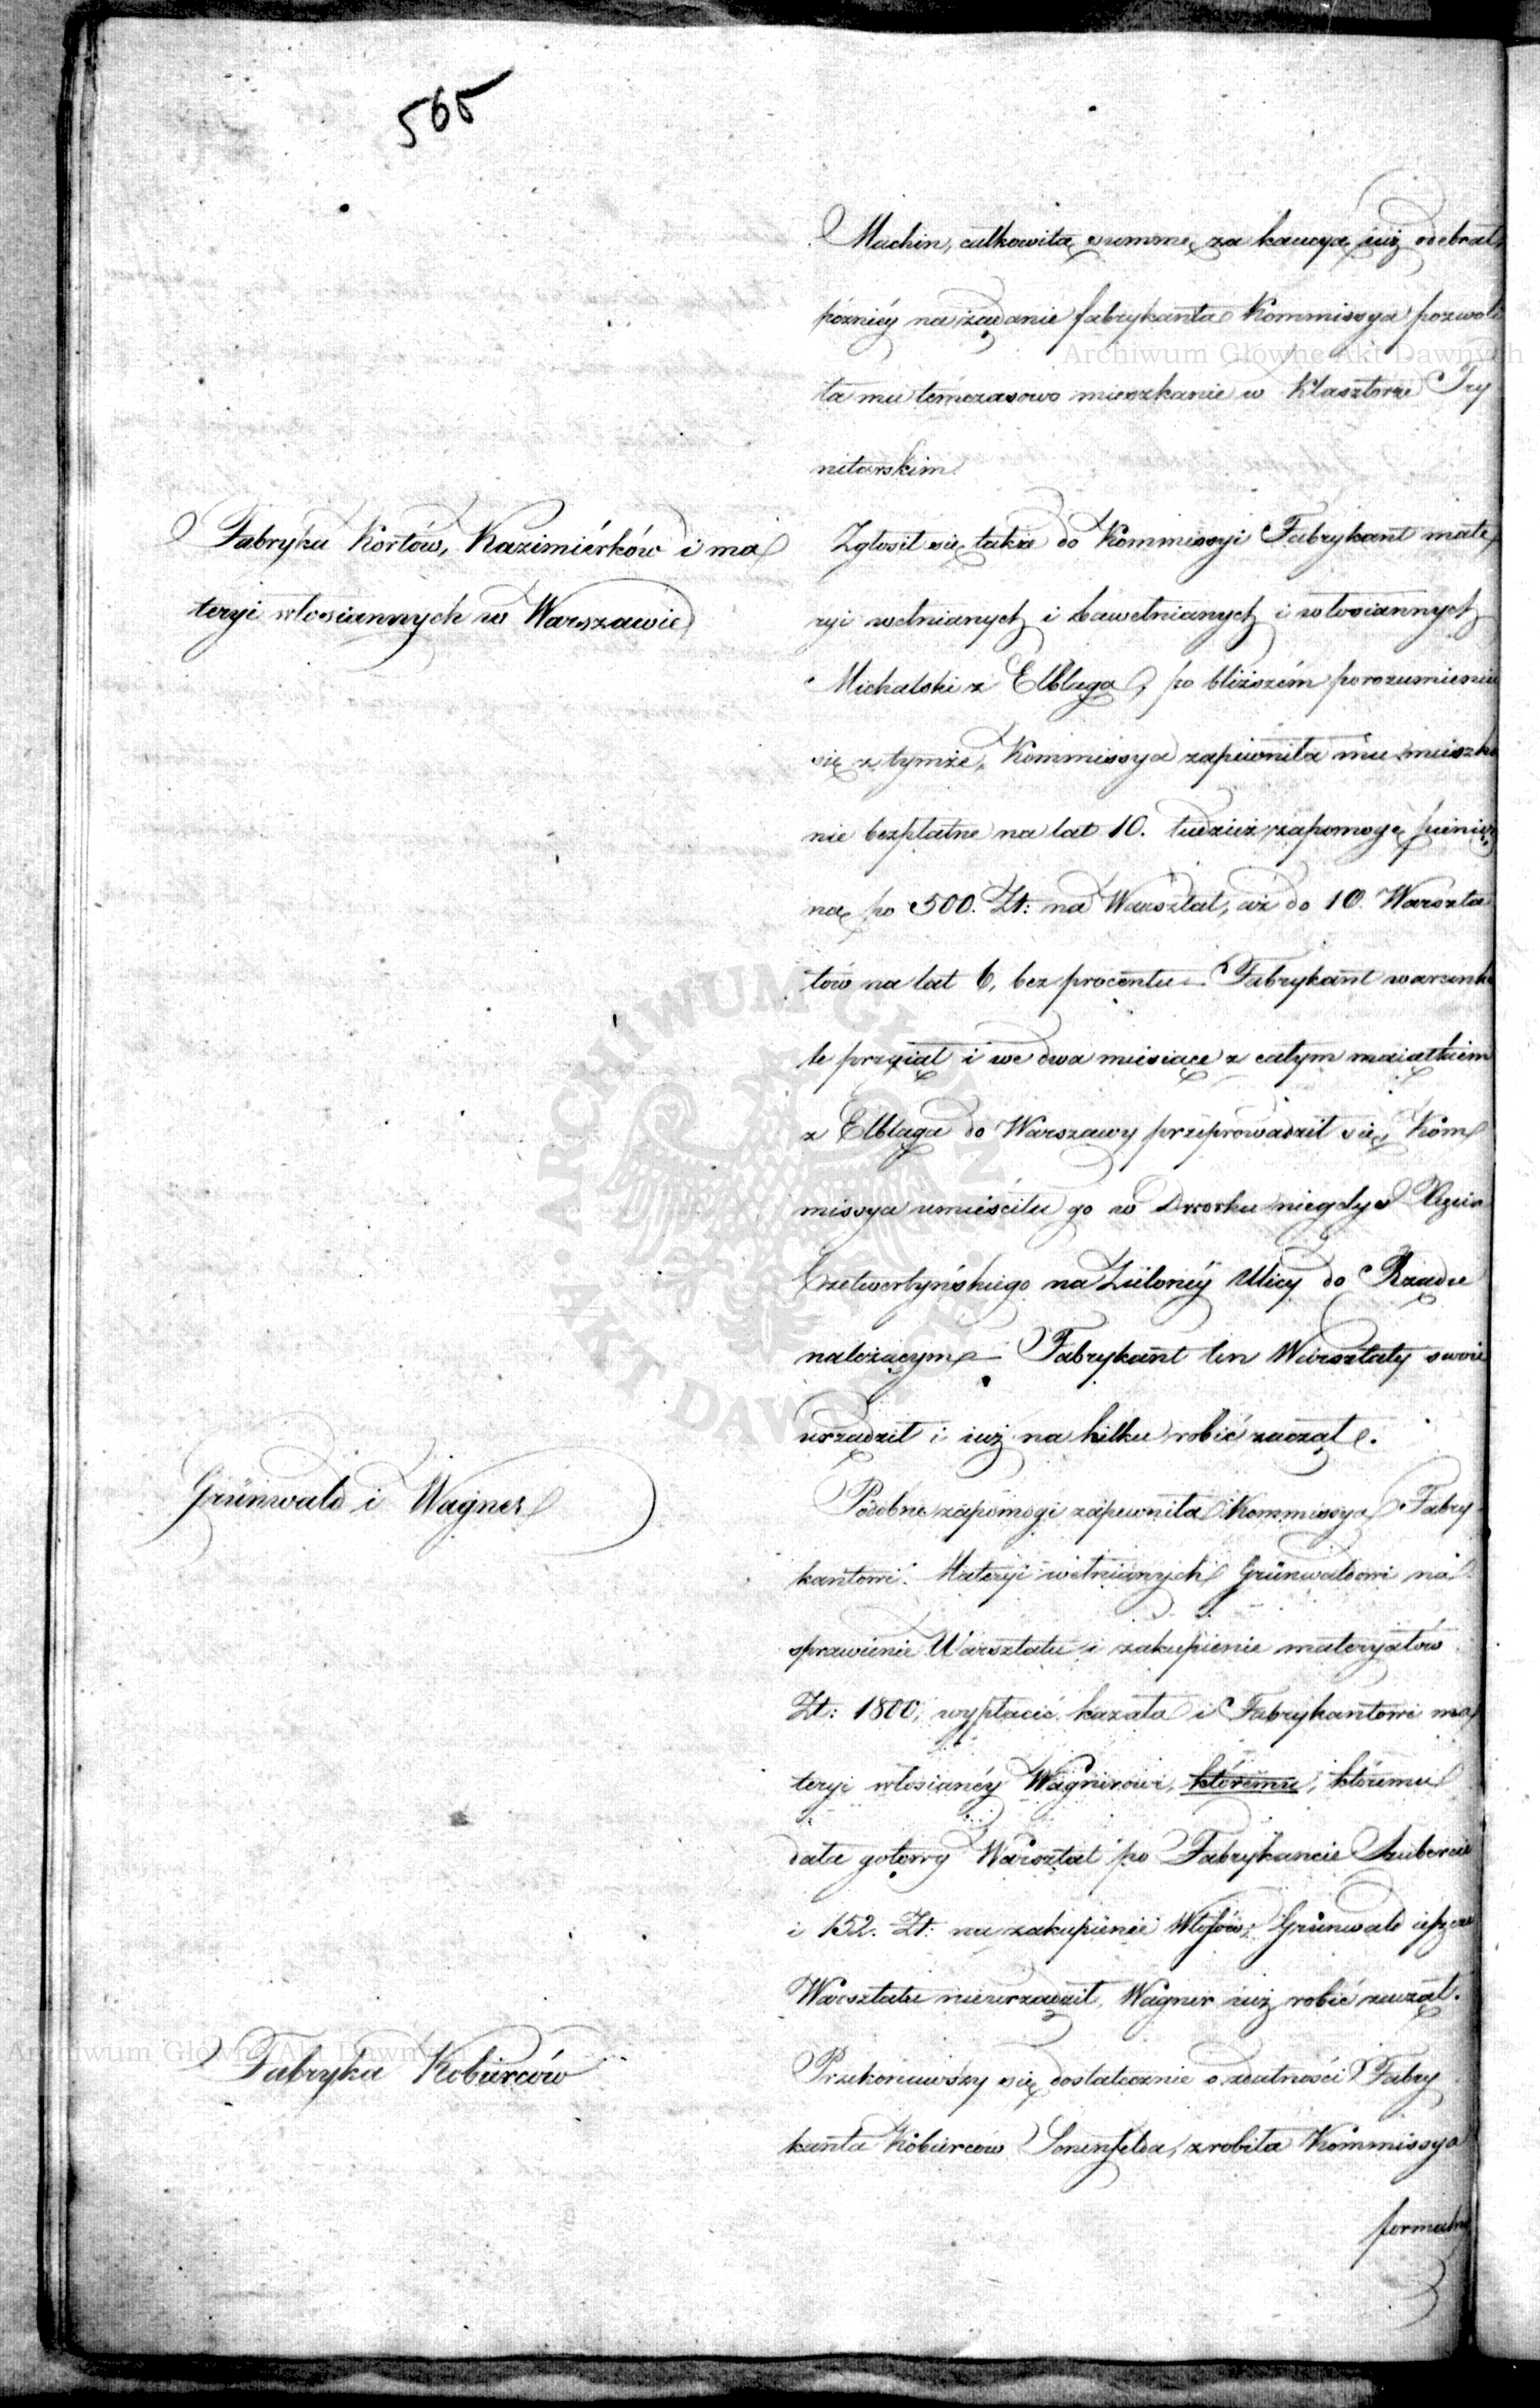 565
Machin, całkowitą summę za kaucyą iuż odebrał,
późniéy na żądanie fabrykanta Kommissya pozwoli
ła mu témczasowo mieszkanie w Klasztorze Try
nitarskim.
Fabryka Kortów, Kazimiérków i ma
teryi włosiannych w Warszawie
Zgłosił się także do Kommissyi Fabrykant mate
ryi wełnianych i bawełnianych i włosiannych
Michalski z Elbląga, po bliższém porozumieniu
się z tymże, Kommissya zapewniła mu mieszka
nie bezpłatne na lat 10. tudzież zapomogę pienięż
ną po 500. Zł: na Warsztat, aż do 10. Warszta
tów na lat 6, bez procentu – Fabrykant warunki
te przyiął i we dwa miesiące z całym maiątkiem
z Elbląga do Warszawy przeprowadził się, Kom
missya umieściła go w Dworku niegdyś Xięcia
Czetwertyńskiego na Zieloney Ulicy do Rządu
należącym – Fabrykant ten Warsztaty swoie
urządził i iuż na kilku robić zaczął.
Grünwald i Wagner
Podobne zapomogi zapewniła Kommissya Fabry
kantowi Materyi wełnianych Grünwaldowi na
sprawienie Warsztatu i zakupienie materyałów
Zł: 1800, wypłacić kazała i Fabrykantowi ma
teryi włosianéy Wagnerowi, któremu, któremu
dała gotowy Warsztat po Fabrykancie Szubercie
i 152. Zł: na zakupienie Włosów; Grünwald ieszcze
Warsztatu nieurządził, Wagner iuż robić zaczął.
Fabryka Kobierców
Przekonawszy się dostatecznie o zdatności Fabry
kanta Kobierców Sonenfelda, zrobiła Kommissya
formalny
Archiwum Główne Akt Dawnych
Archiwum Główne Akt Dawnych
ARCHIWUM GŁÓWNE AKT DAWNYCH